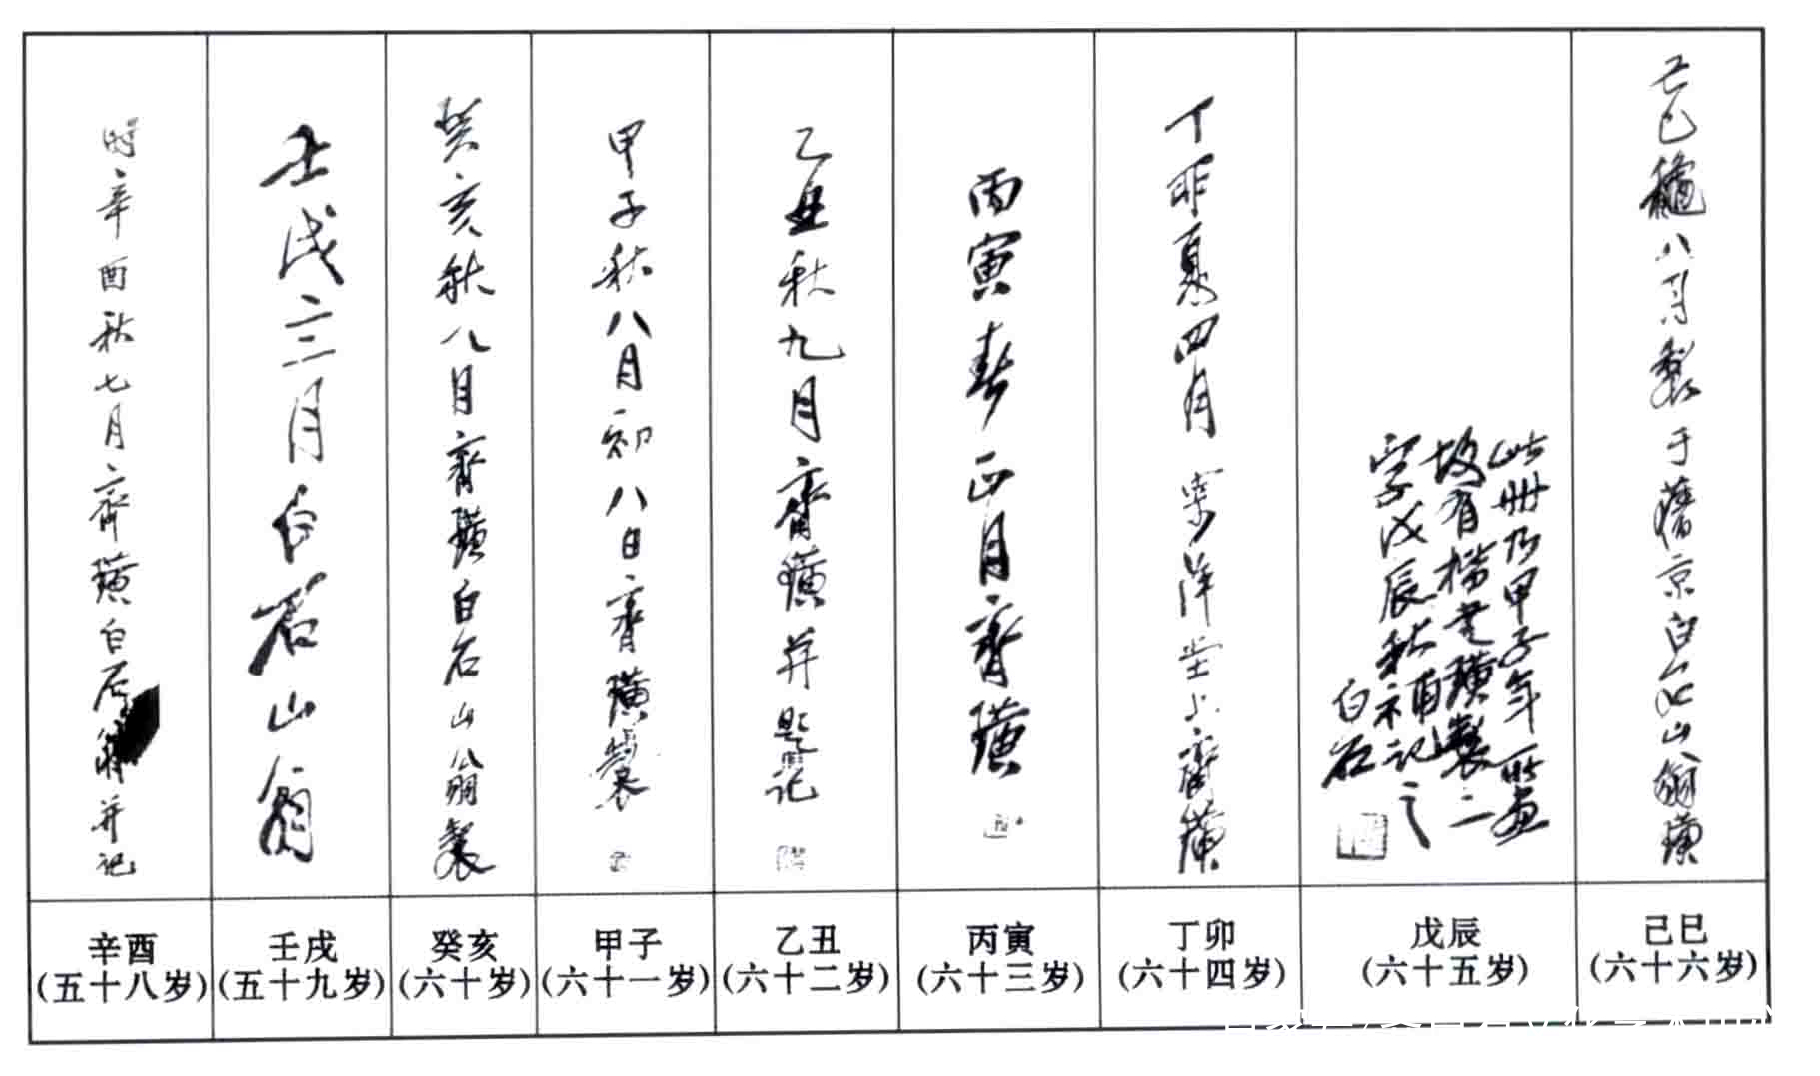 時辛酉秋七月齊璜白石翁并记
壬戌三月白石山翁
癸亥秋八月齊璜白石山翁製
甲子秋八月初八日齊璜製
乙丑秋九月齊璜并題记
丙寅春正月齊璜
丁卯夏四月 齊璜
此册乃甲子年所畫
故有樠者璜製二
字戊辰秋補记之
白石
己巳穐八月製于舊京白石山翁璜
辛酉
(五十八岁)
壬戌
(五十九岁)
癸亥
(六十岁)
甲子
(六十一岁)
乙丑
(六十二岁)
丙寅
(六十三岁)
丁卯
(六十四岁)
戊辰
(六十五岁)
己巳
(六十六岁)